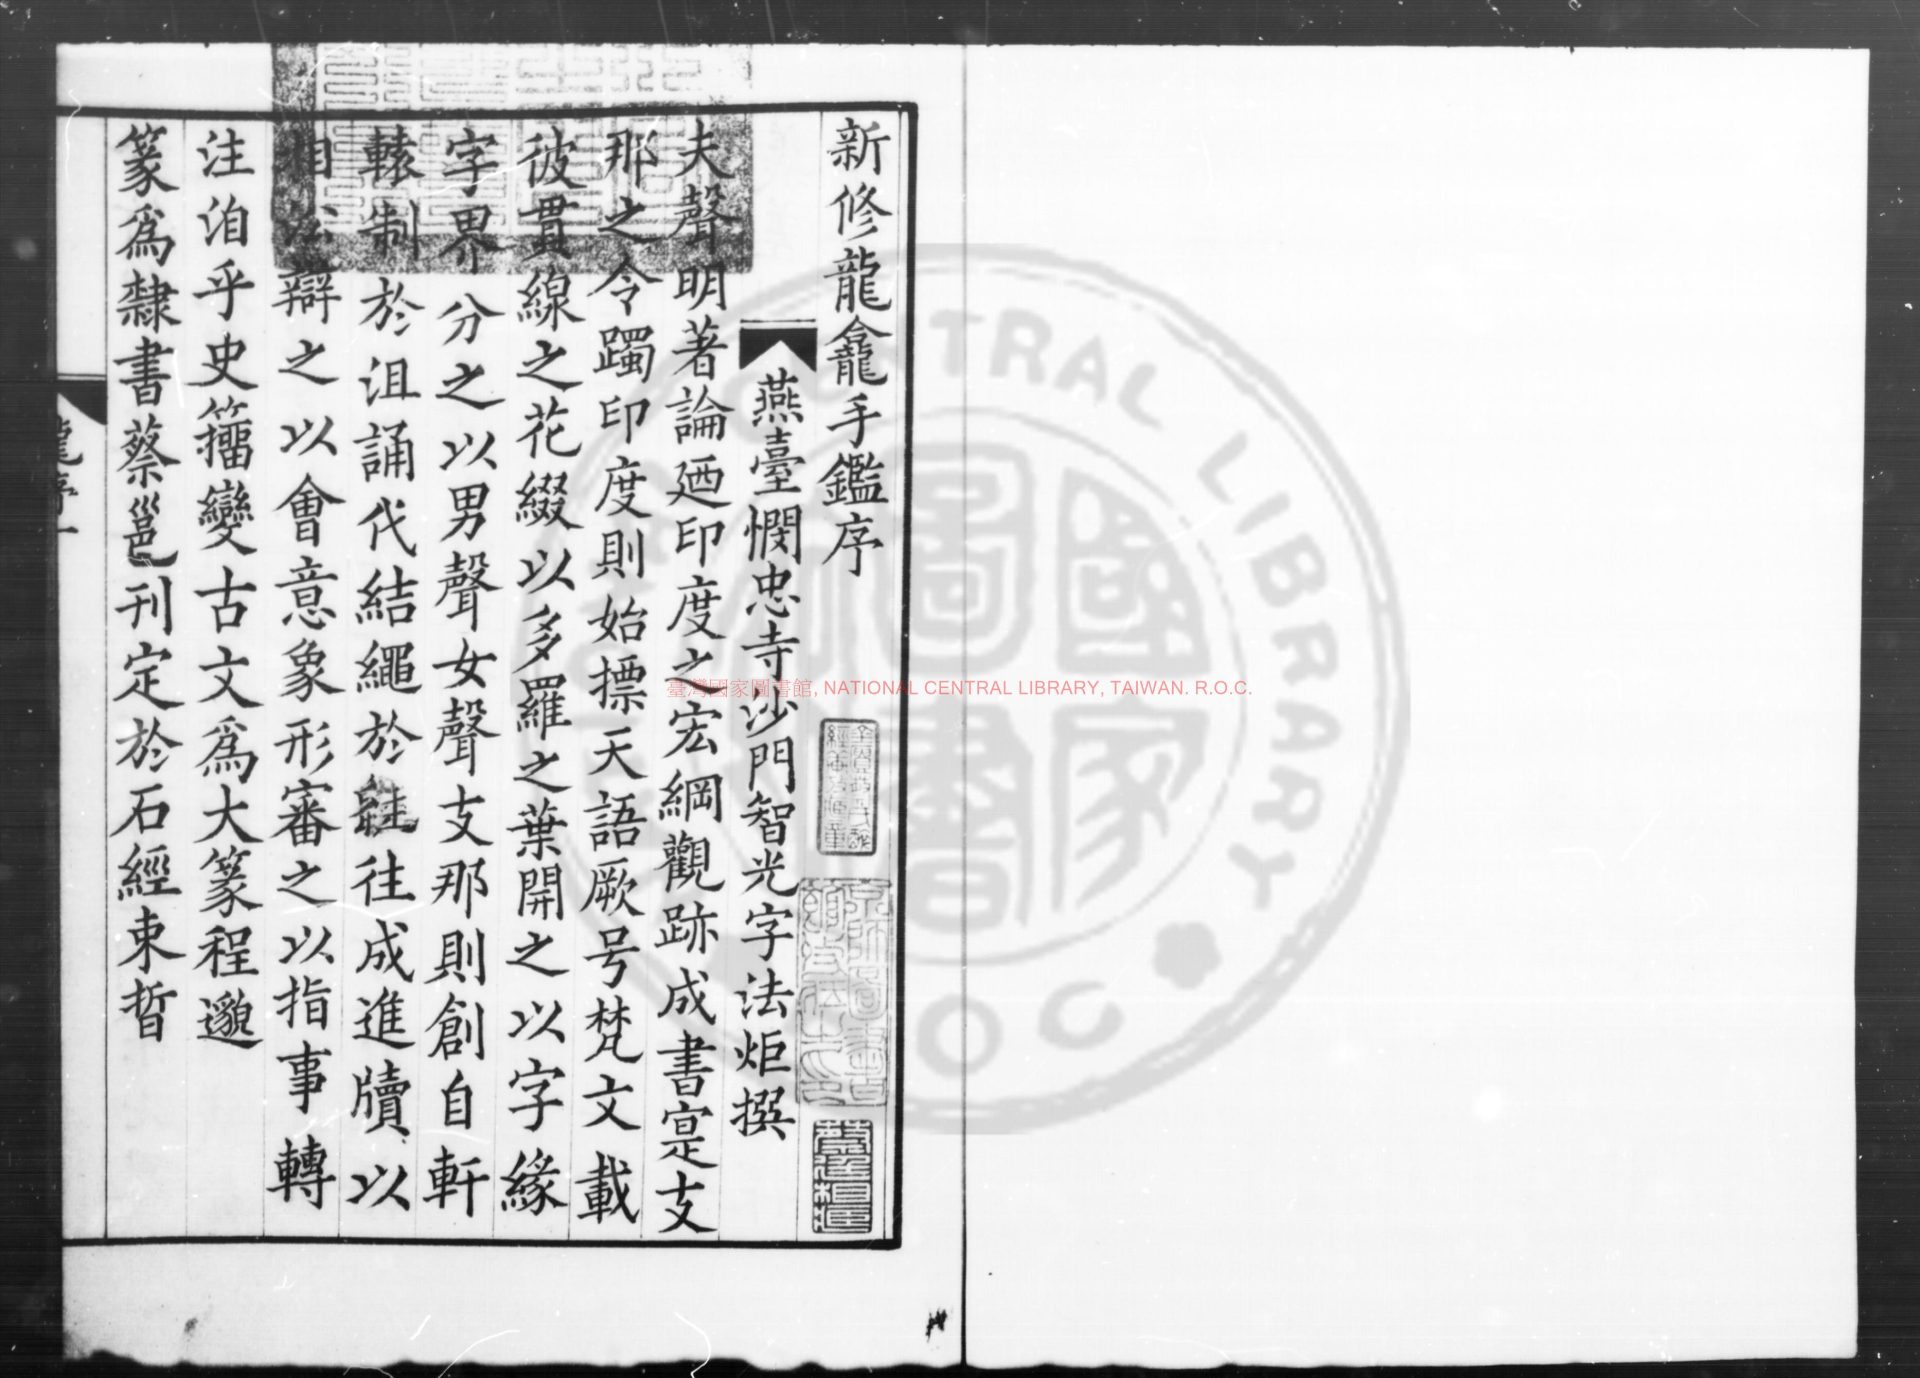 新修龍龕手鑑序
燕臺憫忠寺沙門智光字法炬撰
夫聲明著論廼印度之宏綱觀跡成書寔支
那之令躅印度則始摽天語厥号梵文載
彼貫線之花綴以多羅之葉開之以字緣
字界分之以男聲女聲支那則創自軒
轅制於沮誦代結繩於既往成進牘以
相沿辯之以會意象形審之以指事轉
注洎乎史籒變古文爲大篆程邈
篆爲隸書蔡邕刊定於石經東晳
龍序一
臺灣國家圖書館, NATIONAL CENTRAL LIBRARY, TAIWAN. R.O.C.
CENTRAL LIBRARY
R O C
國家
圖書